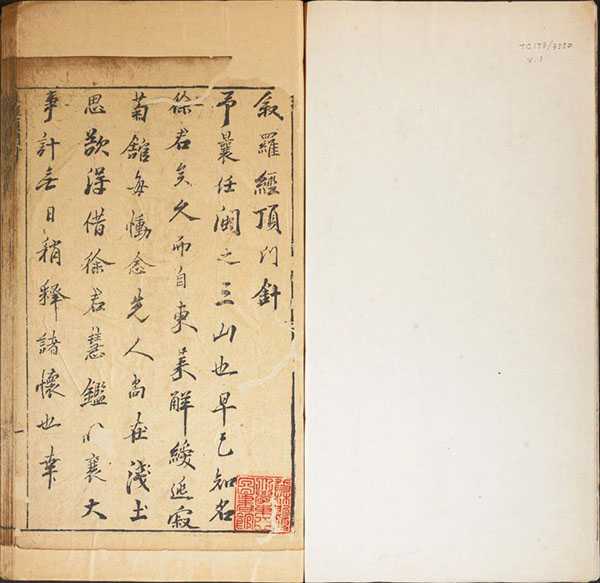 叙羅經頂門針
予曩任閩之三山也早已知名
徐君矣久而自東萊解綬寂
菊館每慟念先人尚在淺土
思欲得借徐君慧鑑以襄大
事計無日稍釋諸懷也幸
V.1